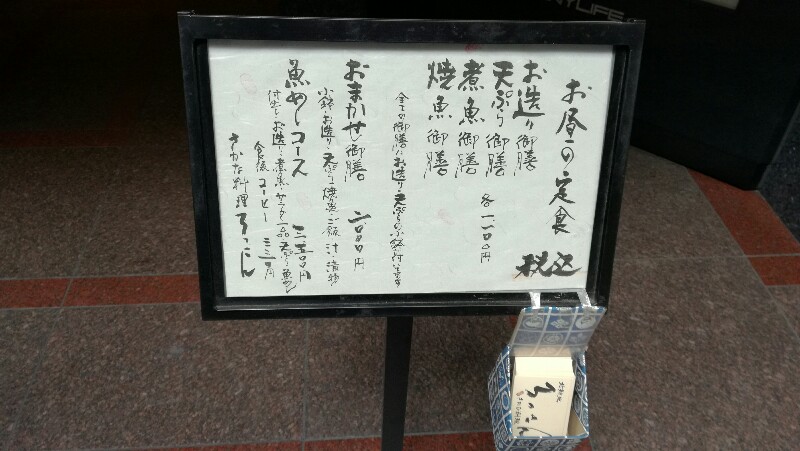 お昼の定食
税込
お造り御膳
天ぷら御膳
煮魚御膳
焼魚御膳
各一一〇〇円
全ての御膳にお造り・天ぷらの小鉢が付いてます
おまかせ御膳
二〇〇〇円
小鉢・お造り・天ぷら・焼魚・ご飯・汁・漬物
魚めしコース
三三〇〇円
付出し・お造り・煮魚・サラダ・一品・天ぷら・魚めし
食後コーヒー
三三〇円
さかな料理
ろっこん